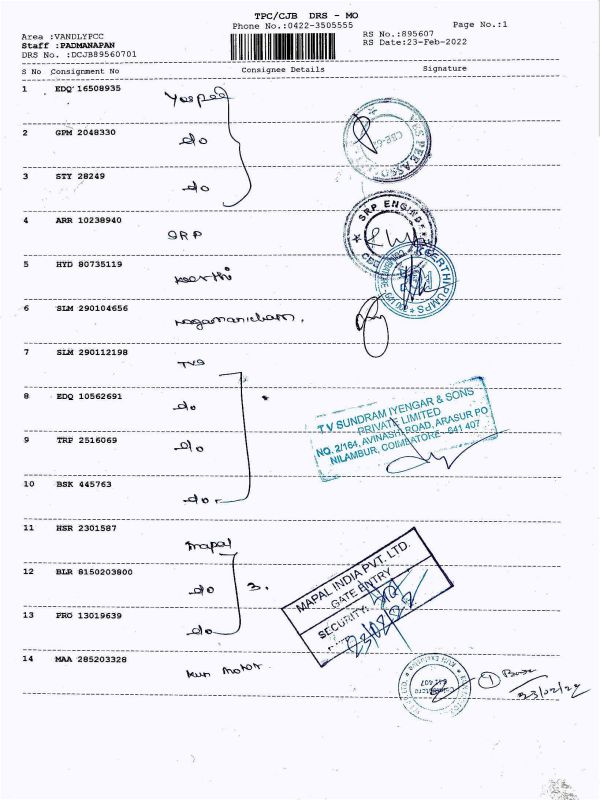 TPC/CJB DRS - MO
Phone No.:0422-3505555 Page No.:1
Area :VANDLYPCC RS No.:895607
Staff :PADMANAPAN RS Date:23-Feb-2022
DRS No. :DCJB89560701
S No Consignment No Consignee Details Signature
1 EDQ 16508935
2 GPM 2048330 do
3 STY 28249 do
4 ARR 10238940 SRP
SRP ENGINE
5 HYD 80735119 Keerthi
KEERTHI PUMPS
6 SLM 290104656 Nagamanickam.
7 SLM 290112198 TVS
8 EDQ 10562691 do
T V SUNDRAM IYENGAR & SONS
PRIVATE LIMITED
9 TRP 2516069 do
NO. 2/164, AVINASHI ROAD, ARASUR PO
NILAMBUR, COIMBATORE - 641 407
10 BSK 445763 do
11 HSR 2301587 Mapal
12 BLR 8150203800 do 3.
MAPAL INDIA PVT. LTD.
GATE ENTRY
SECURITY:
23/02/22
13 PRO 13019639 do
14 MAA 285203328 Kun Motor
1
23/02/22